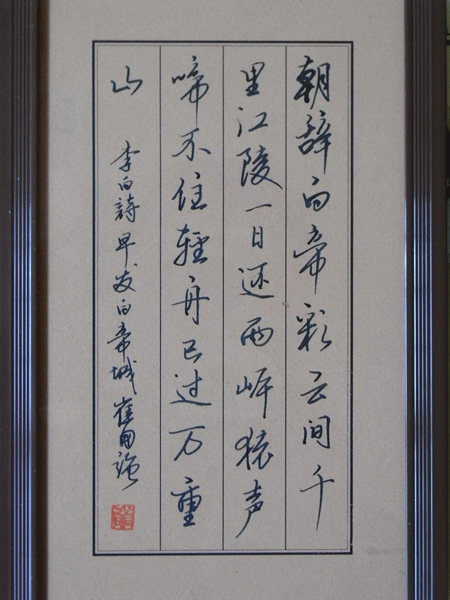 朝辞白帝彩云间千
里江陵一日还两岸猿声
啼不住輕舟已过万重
山
李白詩早发白帝城 崔